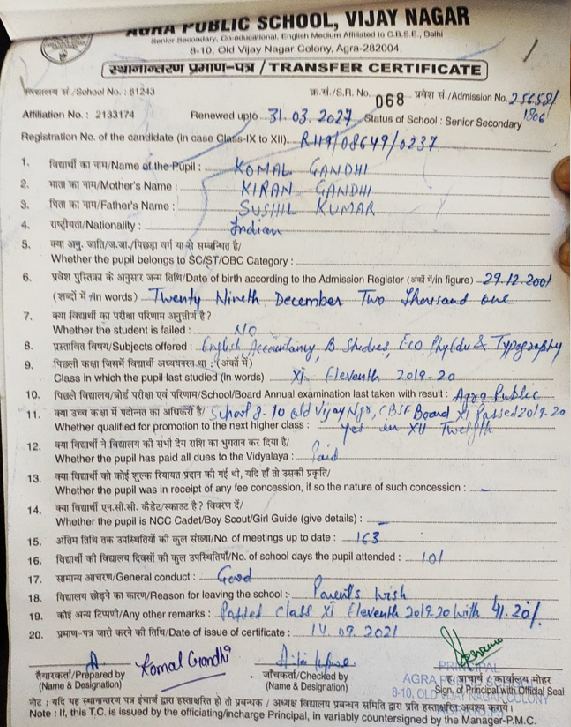 AGRA PUBLIC SCHOOL, VIJAY NAGAR
Senior Secondary, Co-educational, English Medium Affiliated to C.B.S.E., Delhi
3-10, Old Vijay Nagar Colony, Agra-282004
स्थानान्तरण प्रमाण-पत्र / TRANSFER CERTIFICATE
विद्यालय सं./School No. : 81243 क्र.सं./S.R. No. 068 प्रवेश सं./Admission No.
Affiliation No. : 2133174 Renewed upto 31.03.2027 Status of School : Senior Secondary
Registration No. of the candidate (in case Class-IX to XII) R119/08649/0237
1. विद्यार्थी का नाम/Name of the Pupil : KOMAL GANDHI
2. माता का नाम/Mother's Name : KIRAN GANDHI
3. पिता का नाम/Father's Name : SUSHIL KUMAR
4. राष्ट्रीयता/Nationality : Indian
5. क्या अनु. जाति/ज.जा./पिछड़ा वर्ग से सम्बन्धित है/
Whether the pupil belongs to SC/ST/OBC Category :
6. प्रवेश पुस्तिका के अनुसार जन्म तिथि/Date of birth according to the Admission Register (अंकों में/in figure) - 29.12.2001
(शब्दों में/in words) Twenty Nineth December Two thousand one
7. क्या विद्यार्थी का परीक्षा परिणाम अनुत्तीर्ण है?
Whether the student is failed : NO
8. प्रस्तावित विषय/Subjects offered : English Accountancy, B. Studies, Eco Phy Edu & Typography
9. पिछली कक्षा जिसमें विद्यार्थी अध्ययनरत था : (अंकों में)
Class in which the pupil last studied (in words) XI Eleventh 2019-20
10. पिछले विद्यालय/बोर्ड परीक्षा एवं परिणाम/School/Board Annual examination last taken with result : Agra Public
11. क्या उच्च कक्षा में पदोन्नत का अधिकारी है/ School 3-10 old Vijay Ngr, CBSE Board XI Passed 2019-20
Whether qualified for promotion to the next higher class : Yes in XII Twelfth
12. क्या विद्यार्थी ने विद्यालय की सभी देय राशि का भुगतान कर दिया है/
Whether the pupil has paid all dues to the Vidyalaya : Paid
13. क्या विद्यार्थी को कोई शुल्क रियायत प्रदान की गई थी, यदि हाँ तो उसकी प्रकृति/
Whether the pupil was in receipt of any fee concession, if so the nature of such concession : -
14. क्या विद्यार्थी एन.सी.सी. कैडेट/स्काउट है? विवरण दें/
Whether the pupil is NCC Cadet/Boy Scout/Girl Guide (give details) : -
15. अंतिम तिथि तक उपस्थितियों की कुल संख्या/No. of meetings up to date : 163
16. विद्यार्थी की विद्यालय दिवसों की कुल उपस्थितियाँ/No. of school days the pupil attended : 101
17. सामान्य आचरण/General conduct : Good
18. विद्यालय छोड़ने का कारण/Reason for leaving the school : Parent's wish
19. कोई अन्य टिप्पणी/Any other remarks : Passed class XI Eleventh 2019.20 with 41.20%
20. प्रमाण-पत्र जारी करने की तिथि/Date of issue of certificate : 14.09.2021
Komal Gandhi
तैयारकर्ता/Prepared by
(Name & Designation)
जाँचकर्ता/Checked by
(Name & Designation)
PRINCIPAL
ह. प्राचार्य कार्यालय मोहर
Sign. of Principal with Official Seal
AGRA PUBLIC SCHOOL
3-10, OLD VIJAY NAGAR COLONY
नोट : यदि यह स्थानान्तरण पत्र इंचार्ज द्वारा हस्ताक्षरित हो तो प्रबन्धक / अध्यक्ष विद्यालय प्रबन्धन समिति द्वारा प्रति हस्ताक्षरित
Note : If, this T.C. is issued by the officiating/incharge Principal, in variably countersigned by the Manager-P.M.C.